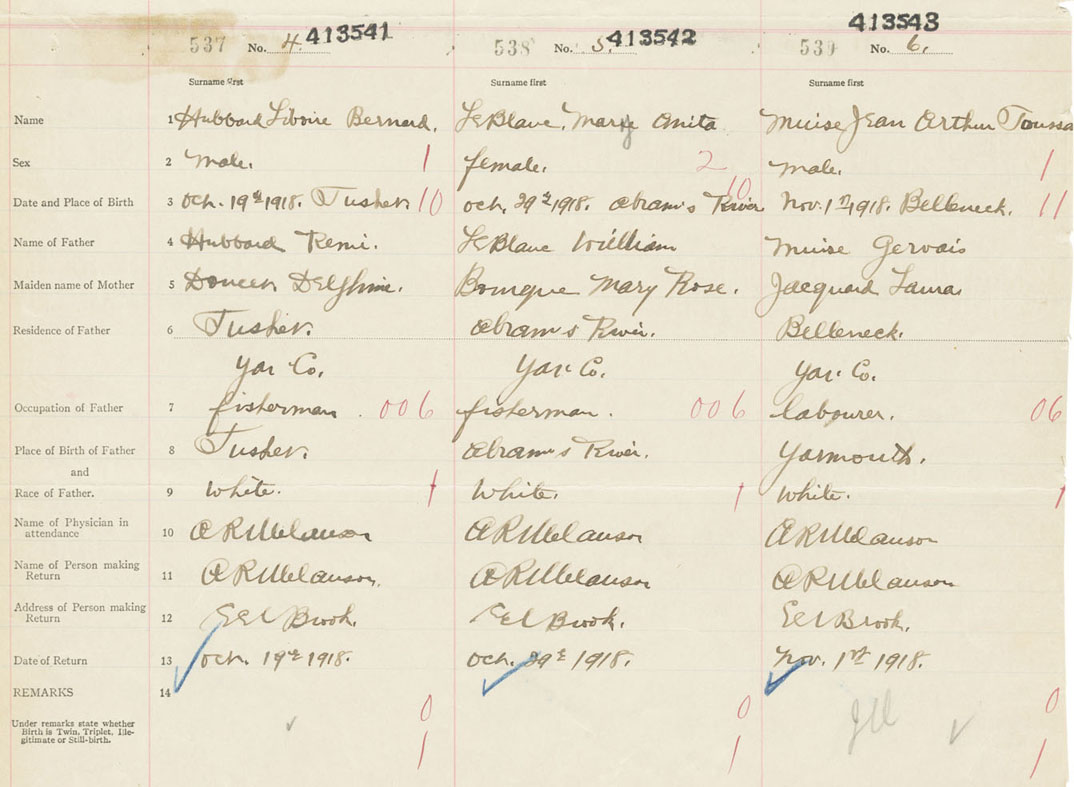 413541 413542 413543
537 No. 4. 538 No. 5. 539 No. 6.
Surname first Surname first Surname first
Name 1 Hubbard Liboire Bernard. LeBlanc, Mary Anita Muise Jean Arthur Toussa
Sex 2 male. 1 female. 2 male. 1
Date and Place of Birth 3 Oct. 19th 1918. Tusket. 10 Oct. 29th 1918. Abram's River 10 Nov. 1st 1918. Belleneck. 11
Name of Father 4 Hubbard Remi. LeBlanc William Muise Gervais
Maiden name of Mother 5 Doucet Delphine. Bourque Mary Rose. Jacquard Laura
Residence of Father 6 Tusket. Abram's River. Belleneck.
Yar Co. Yar Co. Yar. Co.
Occupation of Father 7 fisherman. 006 fisherman. 006 labourer. 06
Place of Birth of Father 8 Tusket. Abram's River. Yarmouth.
and
Race of Father. 9 White. 1 White. 1 White. 1
Name of Physician in
attendance 10 A R Melanson A R Melanson A R Melanson
Name of Person making
Return 11 A R Melanson. A R Melanson A R Melanson
Address of Person making
Return 12 Eel Brook. Eel Brook. Eel Brook.
Date of Return 13 Oct. 19th 1918. Oct. 29th 1918. Nov. 1st 1918.
REMARKS 14
0 0 0
Under remarks state whether
Birth is Twin, Triplet, Ille-
gitimate or Still-birth.
1 1 1